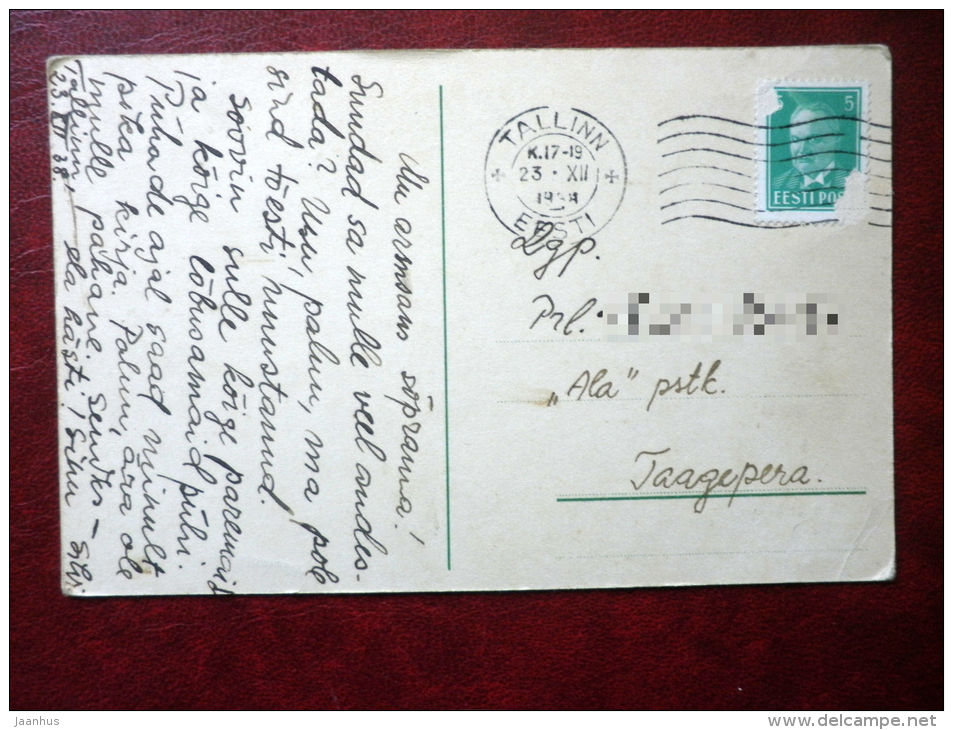 Mu armsam sõpranna!
Suudad sa mulle veel andes-
tada? Usu, palun, ma pole
sind tõesti unustanud.
Soovin sulle kõige paremaid
ja kõige lõbusamaid pühi.
Pühade ajal saad minult
pika kirja. Palun, ära ole
mulle pahane seniks –
Tallinn, ela hästi! Sinu
23. XII 38
TALLINN
K.17-19
23 · XII
EESTI
5
5
EESTI POS
Lgp.
Prl.
„Ala" pstk.
Taagepera.
jaanhus
www.delcampe.net